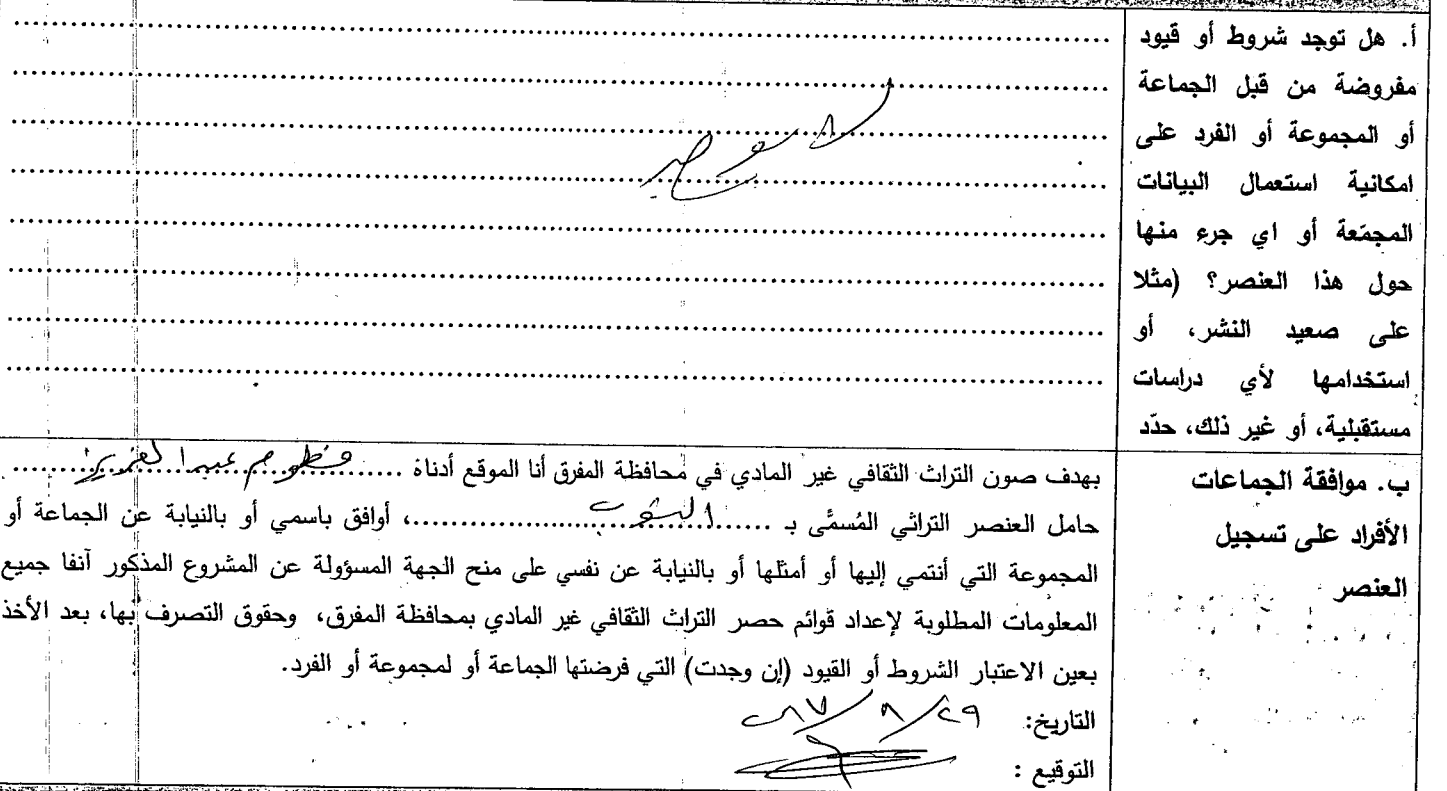 أ. هل توجد شروط أو قيود
مفروضة من قبل الجماعة
أو المجموعة أو الفرد على
امكانية استعمال البيانات
المجمّعة أو اي جرء منها
حول هذا العنصر؟ (مثلا
على صعيد النشر، أو
استخدامها لأي دراسات
مستقبلية، أو غير ذلك، حدّد
لا يوجد
ب. موافقة الجماعات
الأفراد على تسجيل
العنصر
بهدف صون التراث الثقافي غير المادي في محافظة المفرق أنا الموقع أدناة
حامل العنصر التراثي المُسمَّى بـ ، أوافق باسمي أو بالنيابة عن الجماعة أو
المجموعة التي أنتمي إليها أو أمثلها أو بالنيابة عن نفسي على منح الجهة المسؤولة عن المشروع المذكور آنفا جميع
المعلومات المطلوبة لإعداد قوائم حصر التراث الثقافي غير المادي بمحافظة المفرق، وحقوق التصرف بها، بعد الأخذ
بعين الاعتبار الشروط أو القيود (إن وجدت) التي فرضتها الجماعة أو لمجموعة أو الفرد.
التاريخ: ٢٩/٨/٢٠١٧
التوقيع :